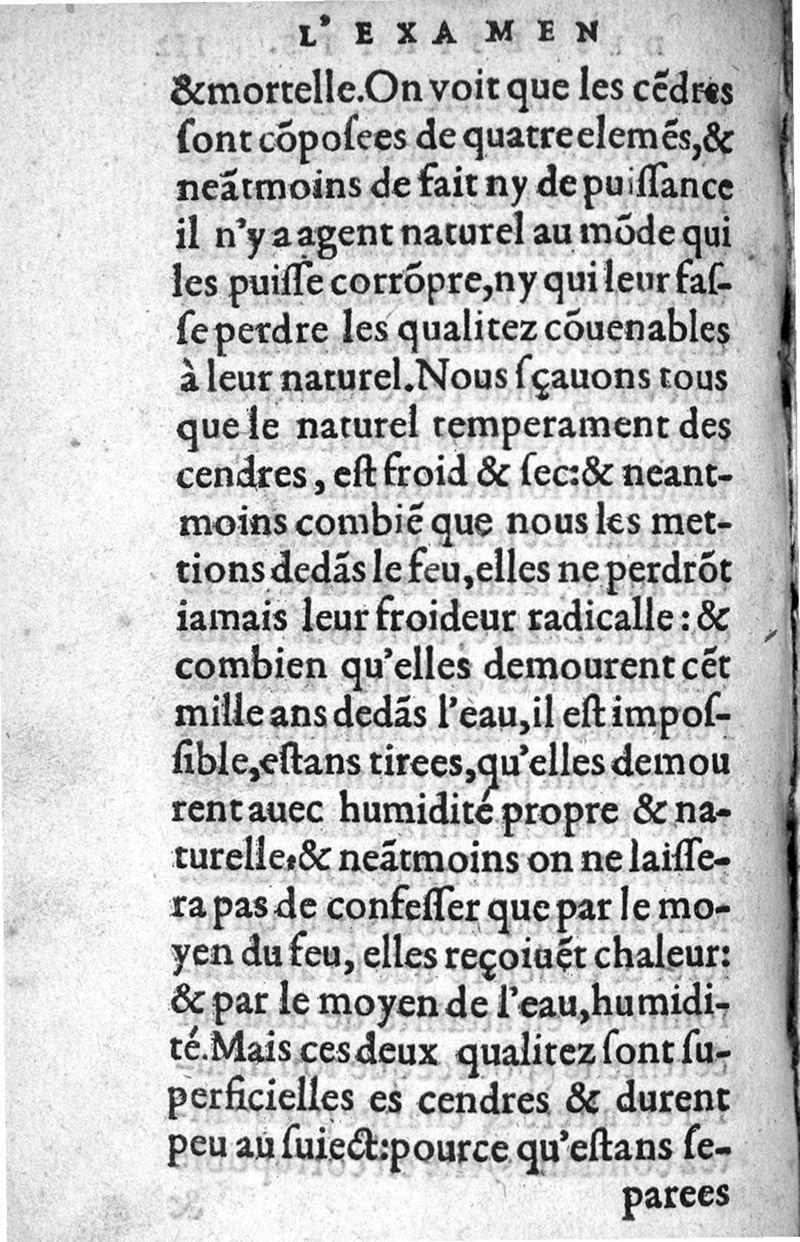 L'EXAMEN
&mortelle.On voit que les cẽdres
ſont cõpoſees de quatre elemẽs,&
neãtmoins de fait ny de puiſſance
il n'y a agent naturel au mõde qui
les puiſſe corrõpre,ny qui leur faſ-
ſe perdre les qualitez cõuenables
à leur naturel.Nous ſçauons tous
que le naturel temperament des
cendres, eſt froid & ſec:& neant-
moins combiẽ que nous les met-
tions dedãs le feu,elles ne perdrõt
iamais leur froideur radicalle:&
combien qu'elles demourent cẽt
mille ans dedãs l'eau,il eſt impoſ-
ſible,eſtans tirees,qu'elles demou
rent auec humidité propre & na-
turelle,& neãtmoins on ne laiſſe-
ra pas de confeſſer que par le mo-
yen du feu, elles reçoiuẽt chaleur:
& par le moyen de l'eau,humidi-
té.Mais ces deux qualitez ſont ſu-
perficielles es cendres & durent
peu au ſuiect:pource qu'eſtans ſe-
parees